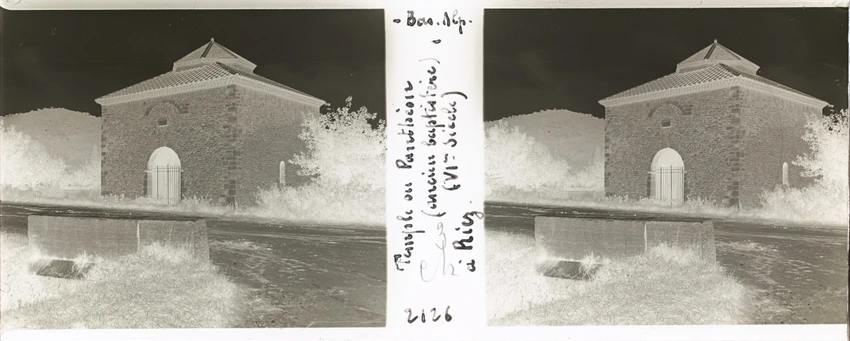 - Bas. Alp. -
Temple ou Panthéon
(ancien baptistère)
(VIme Siècle)
à Riez
2126